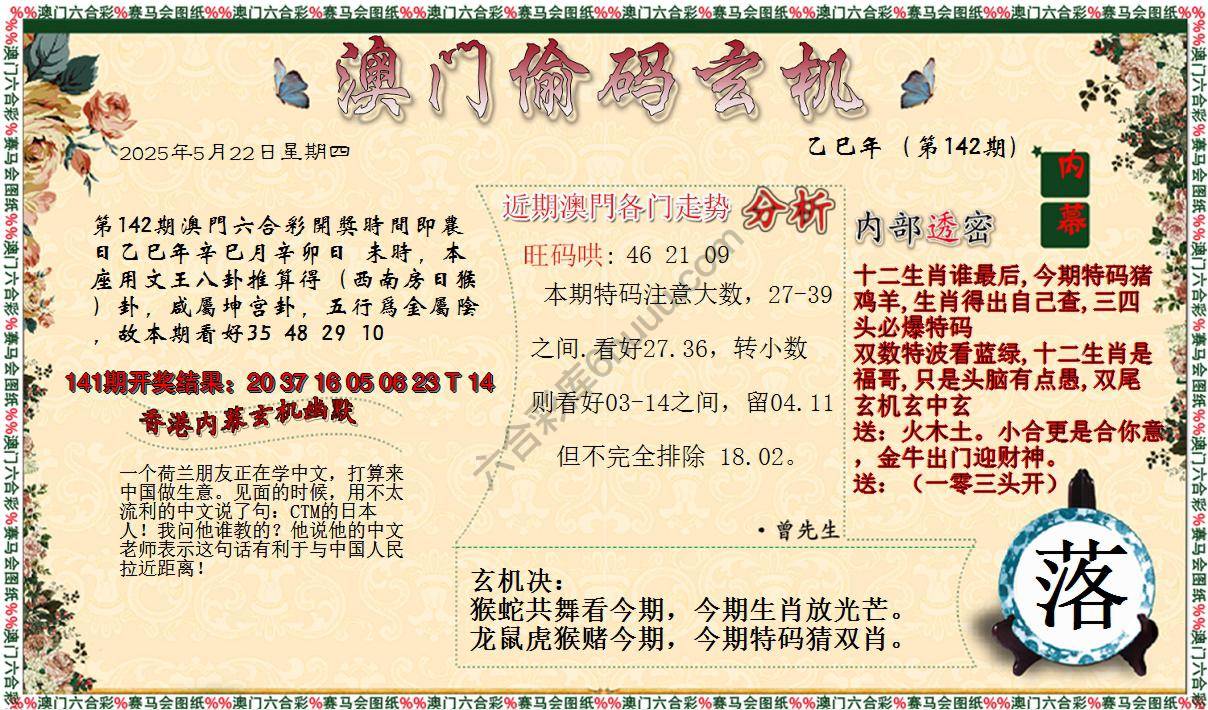 %%澳门六合彩%赛马会图纸%%澳门六合彩%赛马会图纸%%澳门六合彩%赛马会图纸%%澳门六合彩%赛马会图纸%%澳门六合彩%赛马会图纸%%澳门六合彩%赛马会图纸%%
澳门偷码玄机
2025年5月22日星期四
乙巳年（第142期）
内幕
第142期澳門六合彩開獎時間即農
日乙巳年辛巳月辛卯日 未時，本
座用文王八卦推算得（西南房日猴
）卦，咸屬坤宫卦，五行爲金屬陰
，故本期看好35 48 29 10
141期开奖结果：20 37 16 05 06 23 T 14
香港内幕玄机幽默
一个荷兰朋友正在学中文，打算来
中国做生意。见面的时候，用不太
流利的中文说了句：CTM的日本
人！我问他谁教的？他说他的中文
老师表示这句话有利于与中国人民
拉近距离！
近期澳門各门走势 分析
旺码哄：46 21 09
本期特码注意大数，27-39
之间.看好27.36，转小数
则看好03-14之间，留04.11
但不完全排除 18.02。
·曾先生
内部透密
十二生肖谁最后,今期特码猪
鸡羊,生肖得出自己查,三四
头必爆特码
双数特波看蓝绿,十二生肖是
福哥,只是头脑有点愚,双尾
玄机玄中玄
送：火木土。小合更是合你意
，金牛出门迎财神。
送：（一零三头开）
玄机决：
猴蛇共舞看今期，今期生肖放光芒。
龙鼠虎猴赌今期，今期特码猜双肖。
落
%%澳门六合彩%赛马会图纸%%澳门六合彩%赛马会图纸%%澳门六合彩%赛马会图纸%%澳门六合彩%赛马会图纸%%澳门六合彩%赛马会图纸%%澳门六合彩%赛马会图纸%%